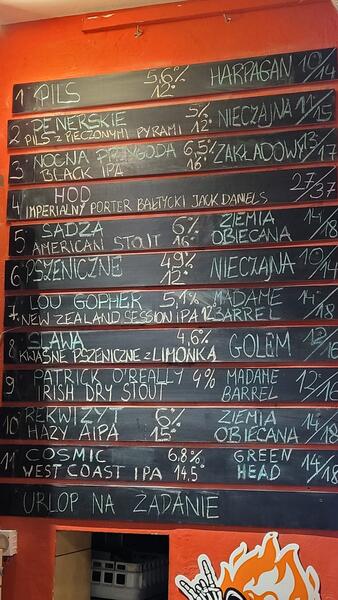 1 PILS 5,6% 12° HARPAGAN 10/14
2 PENERSKIE 5% NIECZAJNA 11/15
PILS Z PIECZONYMI PYRAMI 12°
3 NOCNA PRZYGODA 6,5% ZAKŁADOWY 13/17
BLACK IPA 16°
4 HOD 27/37
IMPERIALNY PORTER BAŁTYCKI JACK DANIELS
5 SADZA 6% ZIEMIA 14/18
AMERICAN STOUT 16° OBIECANA
6 PSZENICZNE 4,9% 12° NIECZAJNA 10/14
7. LOU GOPHER 5,1% MADAME 14/18
NEW ZEALAND SESSION IPA 12° BARREL
8 SLAWA 4,6% GOLEM 12/16
KWAŚNE PSZENICZNE Z LIMONKĄ
9 PATRICK O'REALLY 4% MADAME 12/16
IRISH DRY STOUT BARREL
10 REKWIZYT 6% ZIEMIA 14/18
HAZY AIPA 15° OBIECANA
11 COSMIC 6.8% GREEN 14/18
WEST COAST IPA 14.5° HEAD
URLOP NA ŻĄDANIE